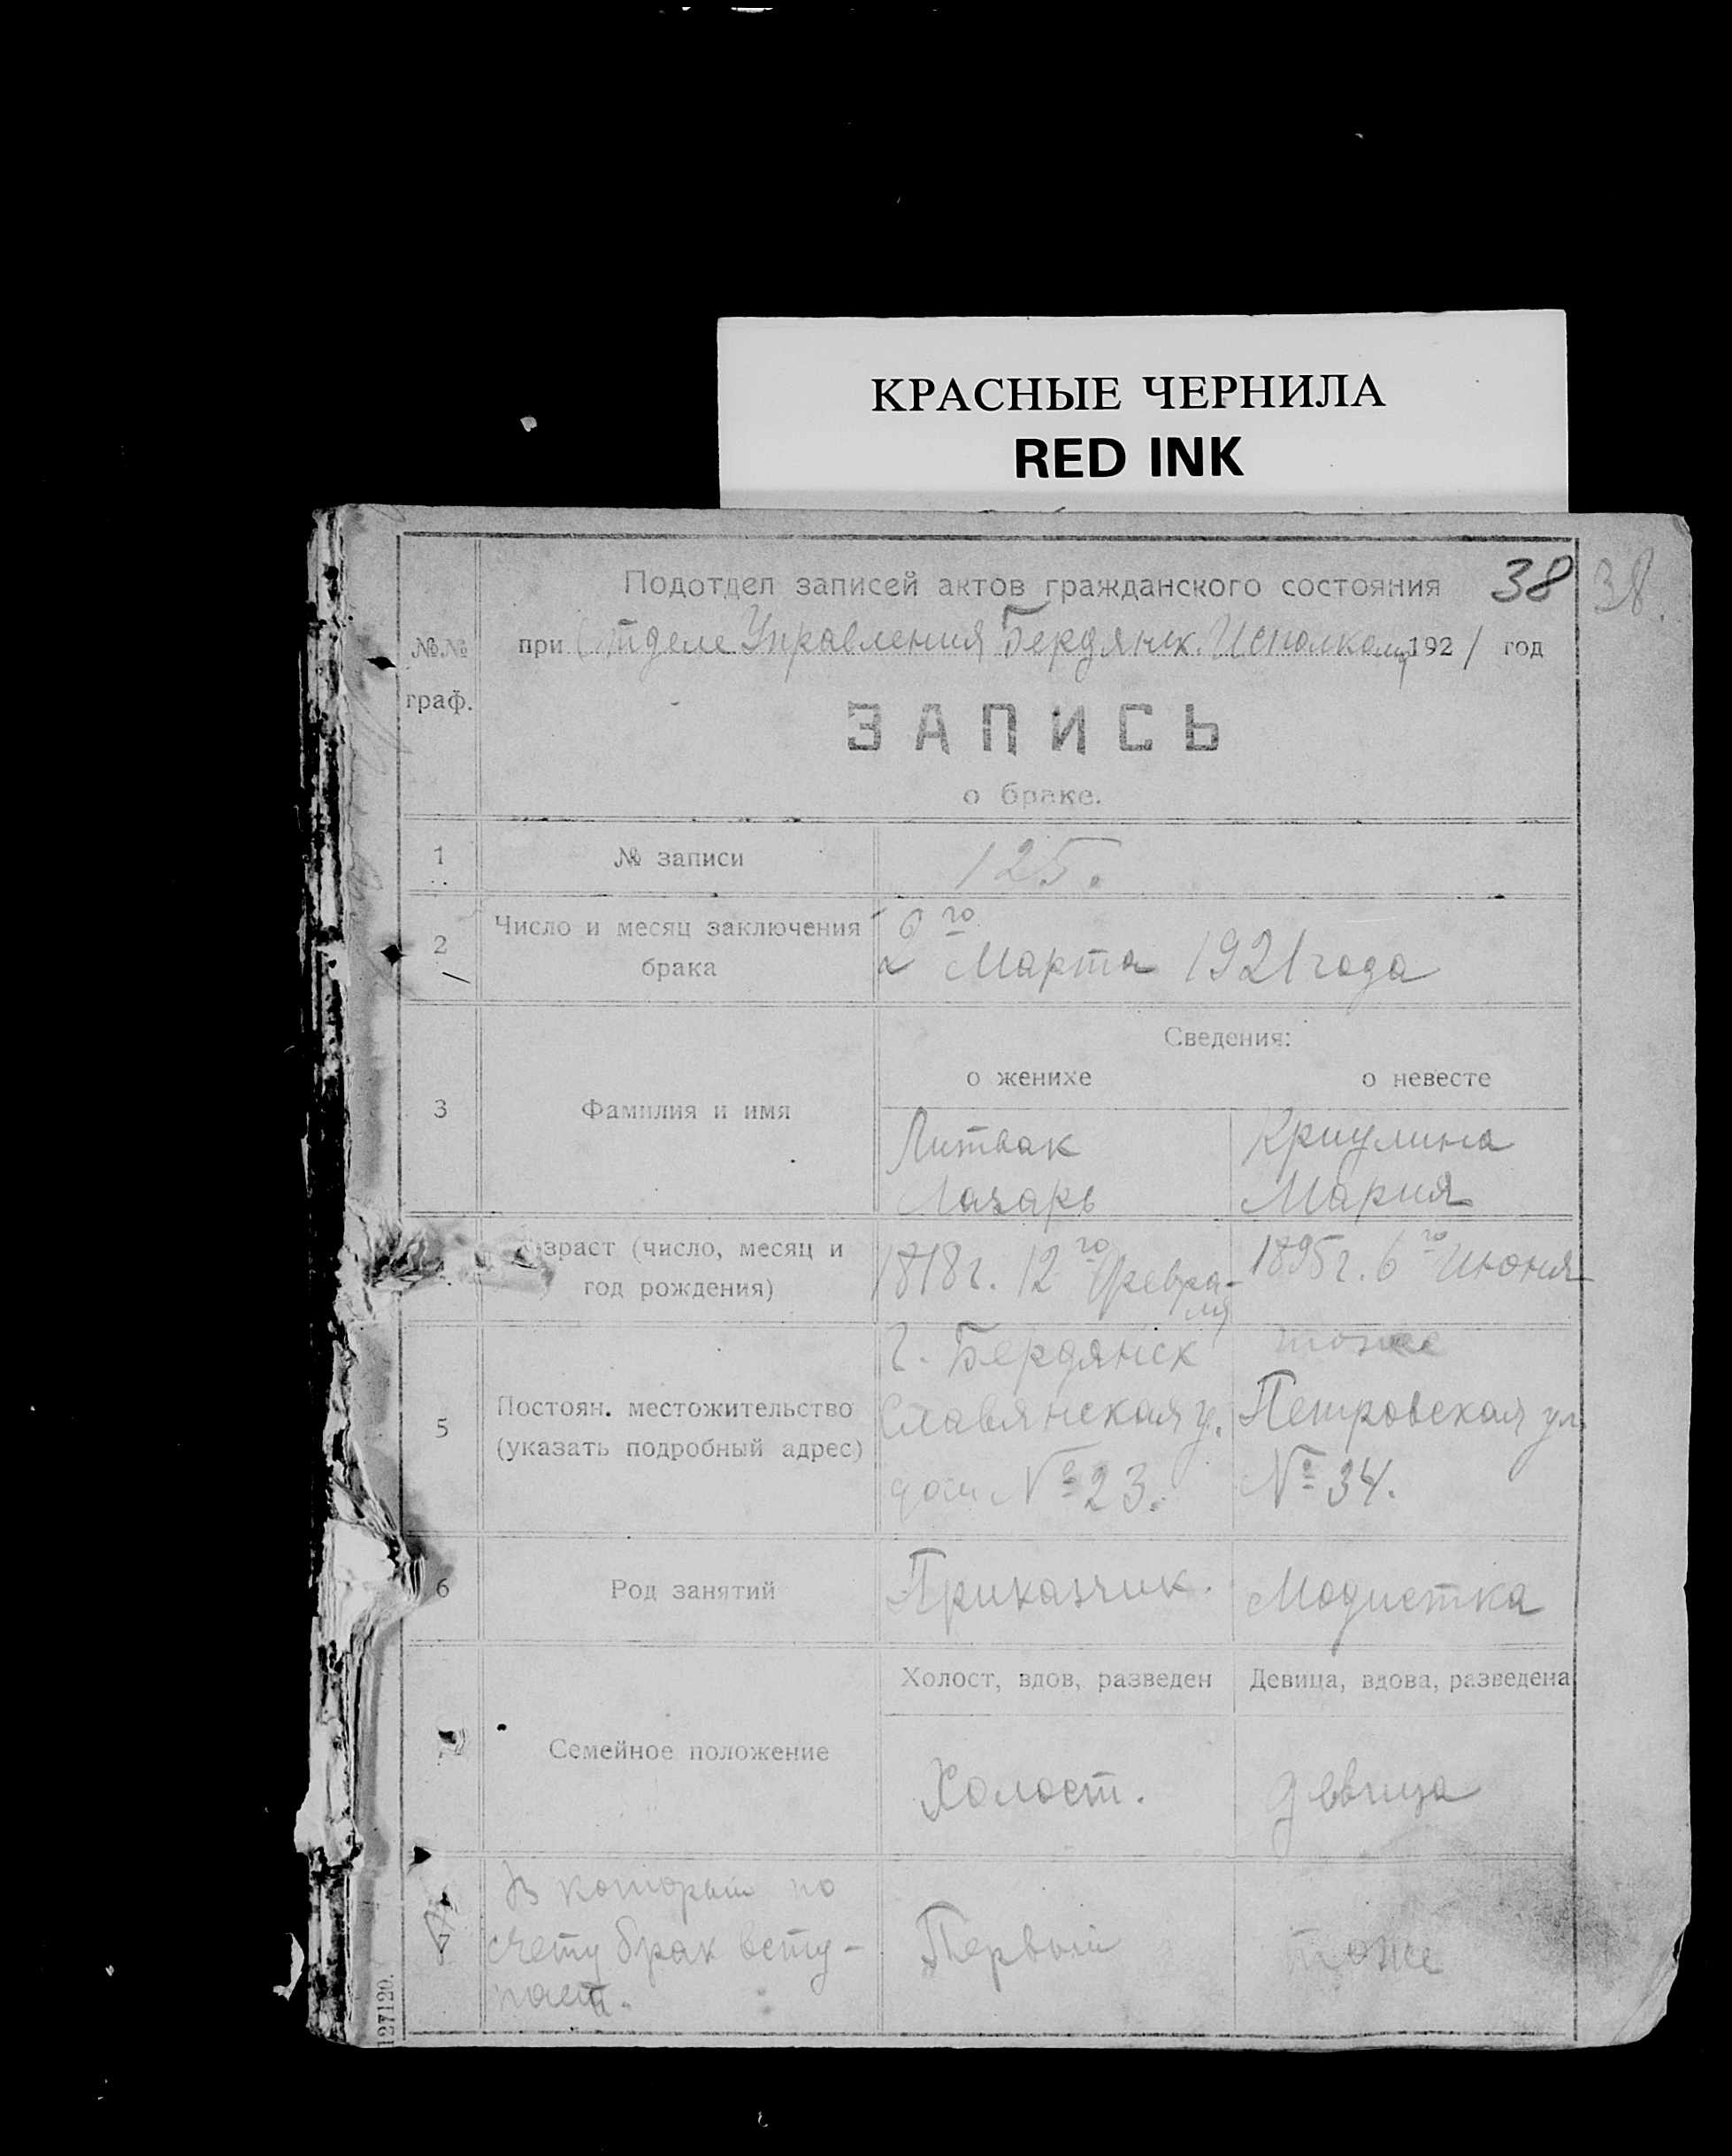 КРАСНЫЕ ЧЕРНИЛА
RED INK
Подотдел записей актов гражданского состояния
38
38.
№№ граф.
при Отделе Управления Бердянск. Исполкома 1921 год
ЗАПИСЬ
о браке.
1
№ записи
125.
2
Число и месяц заключения
брака
го
Марта 1921 года
Сведения:
о женихе
о невесте
3
Фамилия и имя
Литвак
Лазарь
Криулина
Мария
зраст (число, месяц и
год рождения)
г. 12го Февра-
ля
1895г. 6го Июня
5
Постоян. местожительство
(указать подробный адрес)
г. Бердянск
Славянская у.
дом № 23.
тоже
Петровская ул.
№ 34.
6
Род занятий
Приказчик.
Модистка
Холост, вдов, разведен
Девица, вдова, разведена
Семейное положение
Холост.
девица
В который по
счету брак всту-
пает.
Первый
тоже
127120.